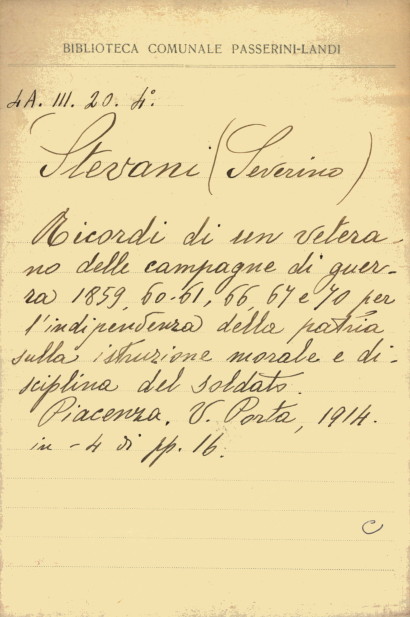 BIBLIOTECA COMUNALE PASSERINI-LANDI
4A. III. 20. 4º.
Stevani (Severino)
Ricordi di un vetera-
no delle campagne di guer-
ra 1859, 60-61, 66, 67 e 70, per
l'indipendenza della patria
sulla istruzione morale e di-
sciplina del soldato.
Piacenza. V. Porta, 1914.
in-4 di pp. 16.
C